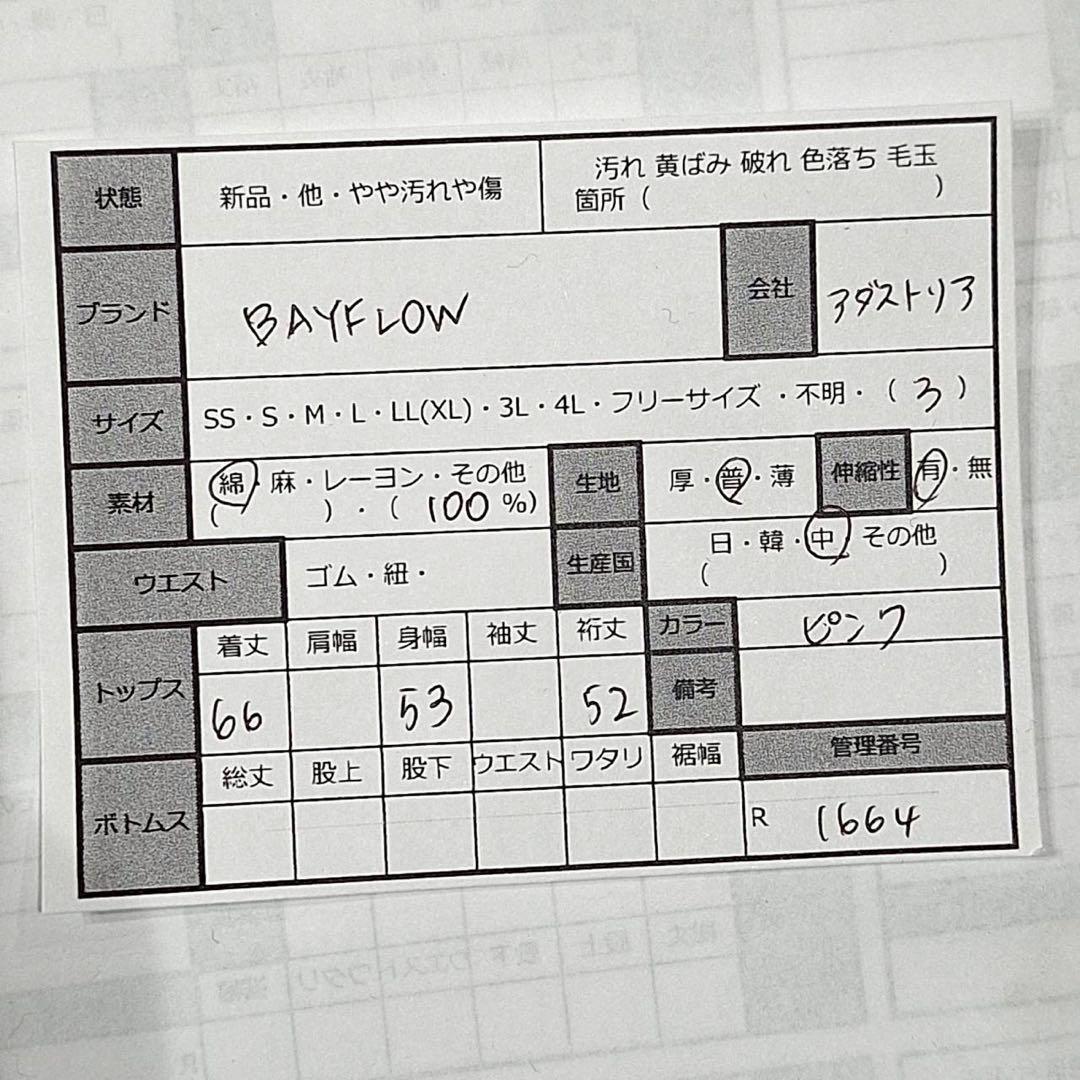 状態 新品・他・やや汚れや傷 汚れ 黄ばみ 破れ 色落ち 毛玉
箇所（ ）
ブランド BAYFLOW 会社 アダストリア
サイズ SS・S・M・L・LL(XL)・3L・4L・フリーサイズ ・不明・（ 3 ）
素材 綿・麻・レーヨン・その他 生地 厚・普・薄 伸縮性 有・無
( ）・（ 100 %)
ウエスト ゴム・紐・ 生産国 日・韓・中 その他
( )
トップス 着丈 肩幅 身幅 袖丈 裄丈 カラー ピンク
66 53 52 備考
ボトムス 総丈 股上 股下 ウエスト ワタリ 裾幅 管理番号
R 1664